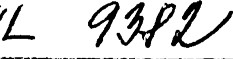 L 9382